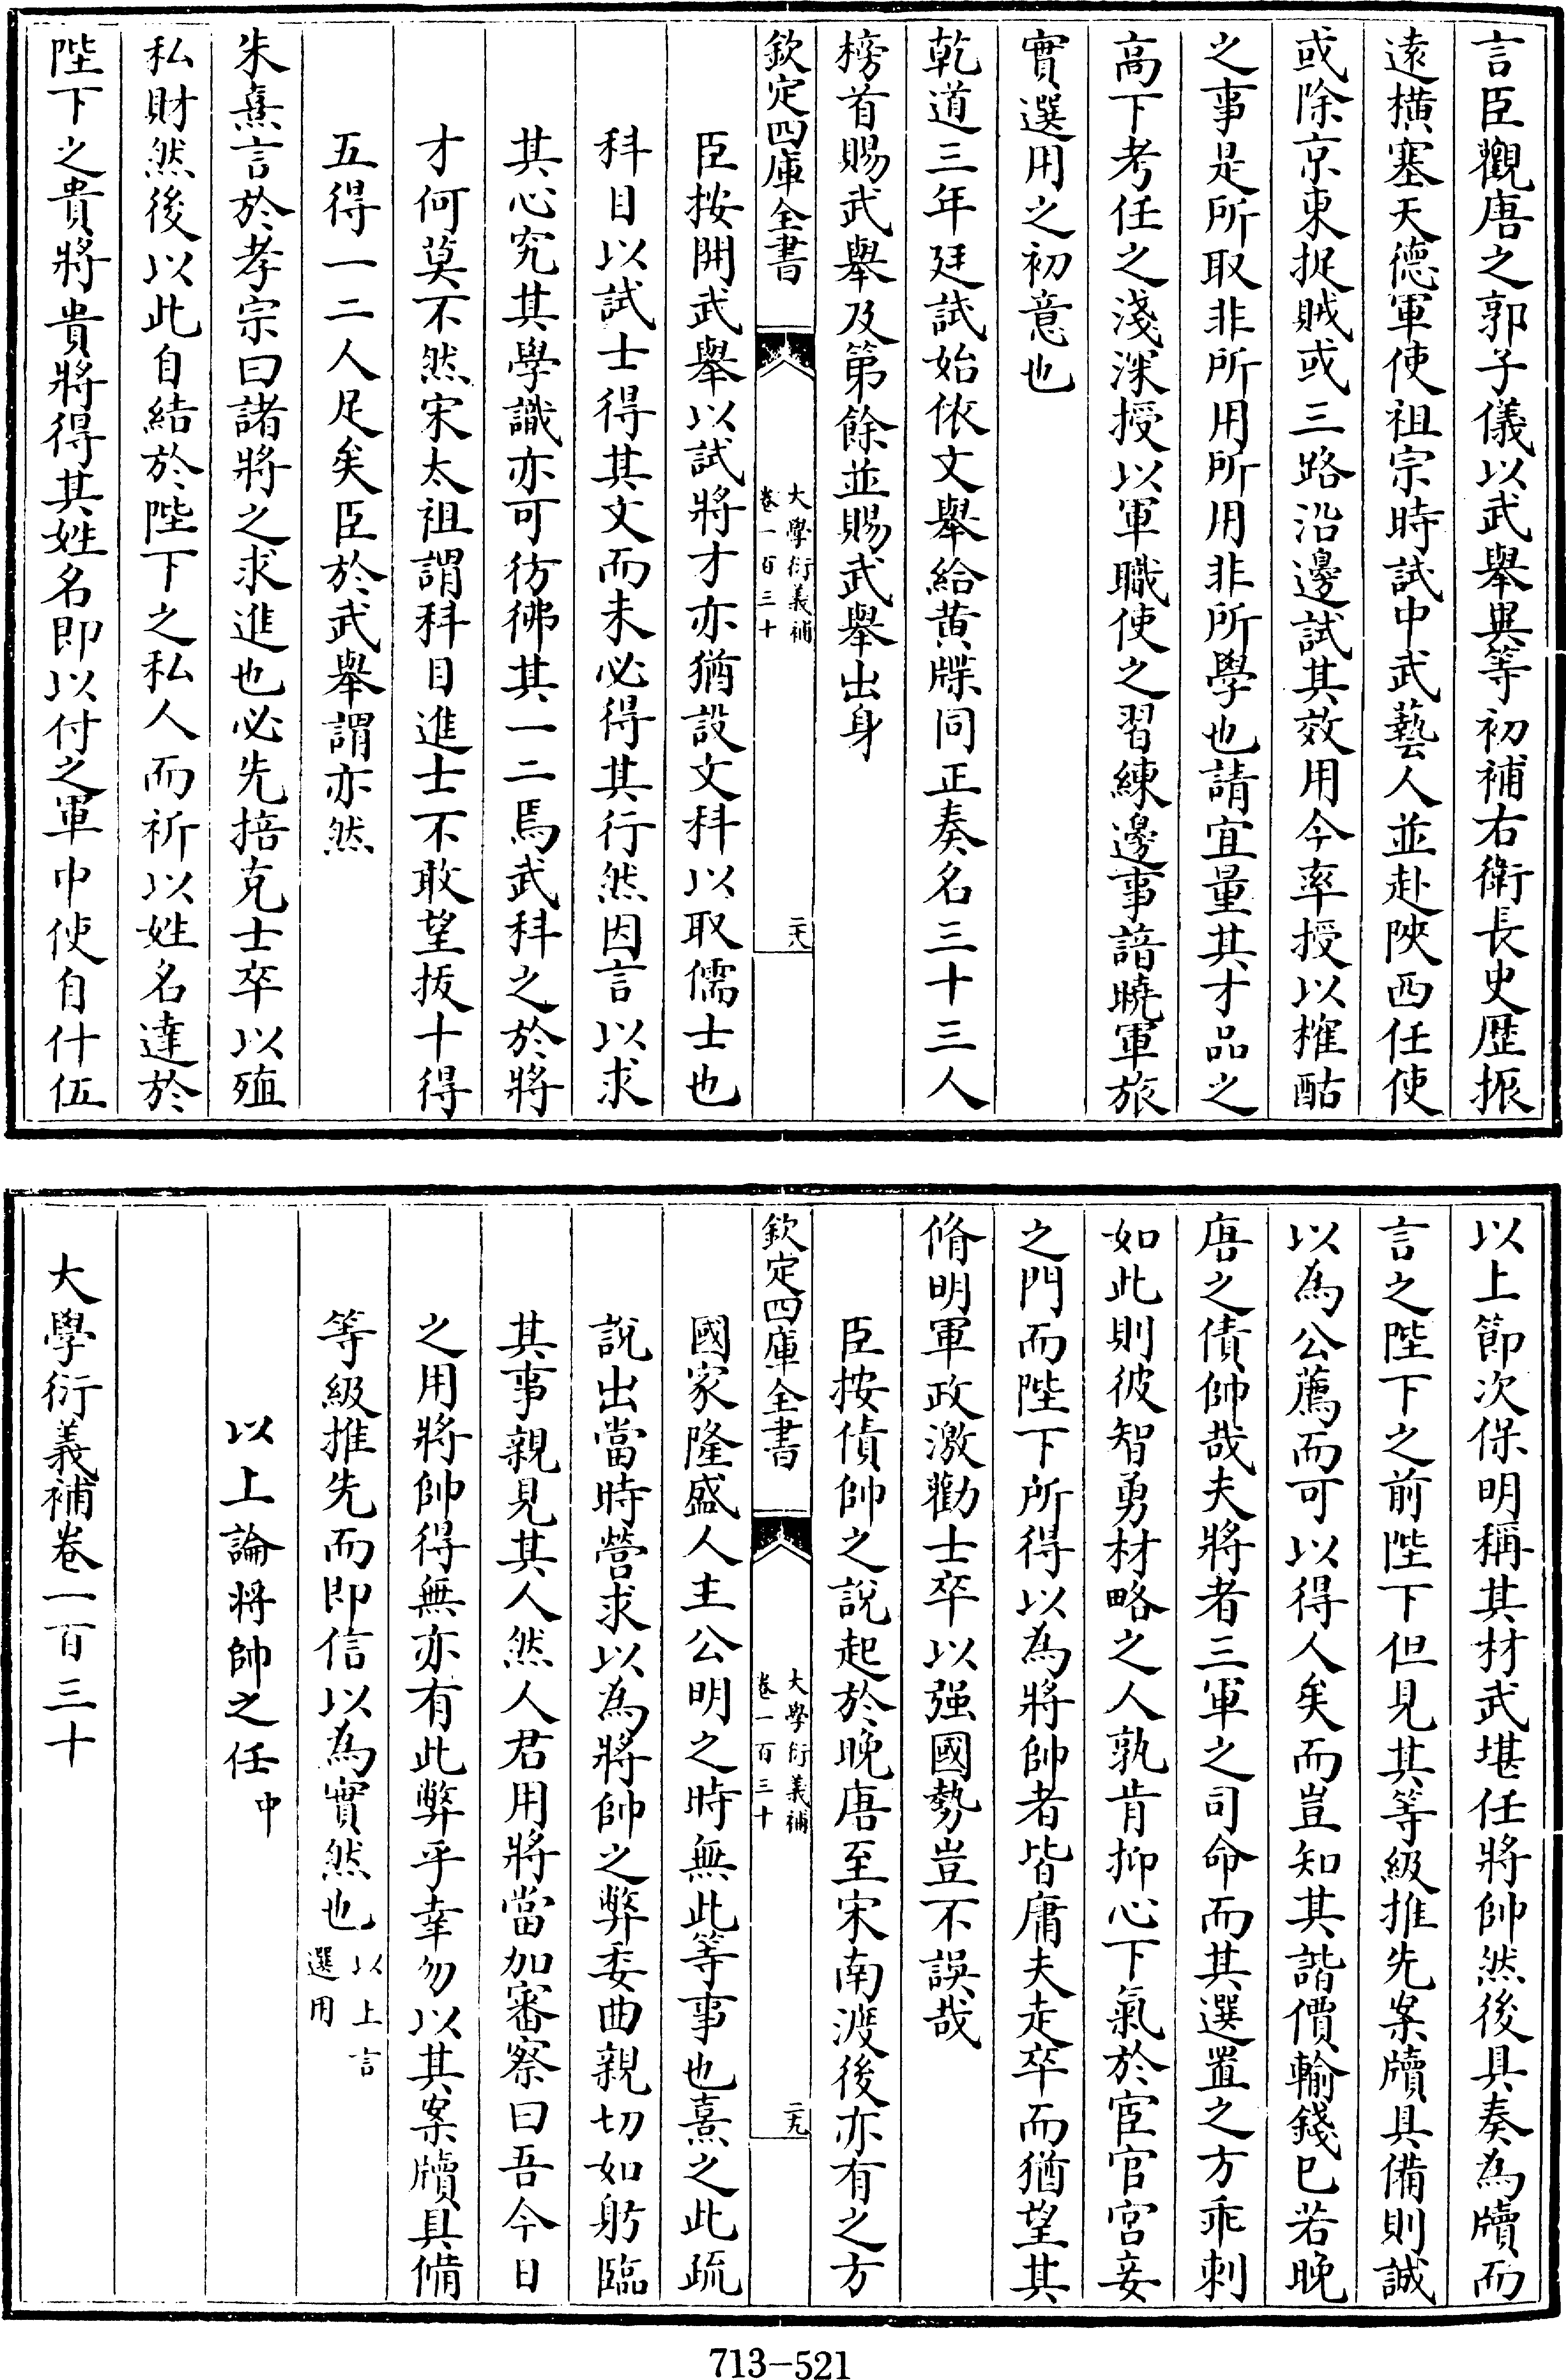 言臣觀唐之郭子儀以武舉異等初補右衛長史歴振
遠横塞天德軍使祖宗時試中武藝人並赴陜西任使
或除京東捉賊或三路沿邊試其效用今率授以榷酤
之事是所取非所用所用非所學也請宜量其才品之
高下考任之淺深授以軍職使之習練邊事諳曉軍旅
實選用之初意也
乾道三年廷試始依文舉給黄牒同正奏名三十三人
榜首賜武舉及第餘並賜武舉出身
欽定四庫全書
大學衍義補
卷一百三十
二十八
臣按開武舉以試將才亦猶設文科以取儒士也
科目以試士得其文而未必得其行然因言以求
其心究其學識亦可彷彿其一二焉武科之於將
才何莫不然宋太祖謂科目進士不敢望拔十得
五得一二人足矣臣於武舉謂亦然
朱熹言於孝宗曰諸將之求進也必先掊克士卒以殖
私財然後以此自結於陛下之私人而祈以姓名達於
陛下之貴將貴將得其姓名即以付之軍中使自什伍
以上節次保明稱其材武堪任將帥然後具奏為牘而
言之陛下之前陛下但見其等級推先案牘具備則誠
以為公薦而可以得人矣而豈知其諧價輸錢已若晚
唐之債帥哉夫將者三軍之司命而其選置之方乖刺
如此則彼智勇材略之人孰肯抑心下氣於宦官宮妾
之門而陛下所得以為將帥者皆庸夫走卒而猶望其
脩明軍政激勸士卒以强國勢豈不誤哉
臣按債帥之說起於晚唐至宋南渡後亦有之方
欽定四庫全書
大學衍義補
卷一百三十
二十九
國家隆盛人主公明之時無此等事也熹之此疏
說出當時營求以為將帥之弊委曲親切如躬臨
其事親見其人然人君用將當加審察曰吾今日
之用將帥得無亦有此弊乎幸勿以其案牘具備
等級推先而即信以為實然也以上言
選用
以上論將帥之任中
大學衍義補卷一百三十
713-521